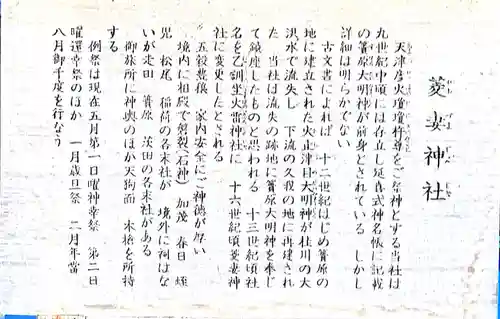 菱妻神社
天津彦火瓊瓊杵尊をご祭神とする当社は
九世紀中頃には存立し延喜式神名帳に記載
の簀原大明神が前身とされている しかし
詳細は明らかでない
古文書によれば 十二世紀はじめ簀原の
地に建立された火止津目大明神が桂川の大
洪水で流失し 下流の久我の地に再建され
た 当社は流失の跡地に簀原大明神を奉じ
て鎮座したものと思われる 十三世紀頃社
名を乙訓坐火雷神社に 十六世紀頃菱妻神
社に変更したとされる
五穀豊穣 家内安全にご神徳が厚い
境内に相殿で剱裂(石神) 加茂 春日 蛭
児 松尾 稲荷の各末社が 境外に祠はな
いが走田 簀原 茨田の各末社がある
御旅所に神輿のほか天狗面 木槍を所持
する
例祭は現在五月第一日曜神幸祭 第二日
曜還幸祭のほか 一月歳旦祭 二月年當
八月御千度を行なう